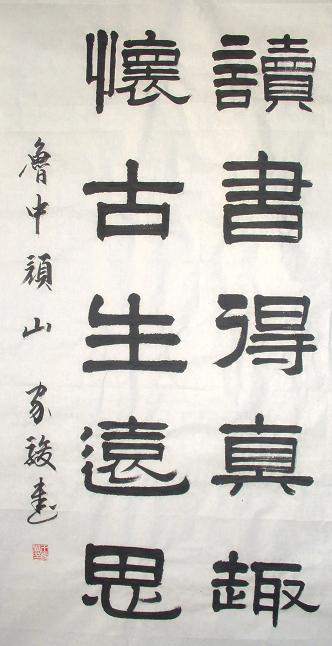 讀書得真趣
懷古生遠思
魯中顏山 家駿書